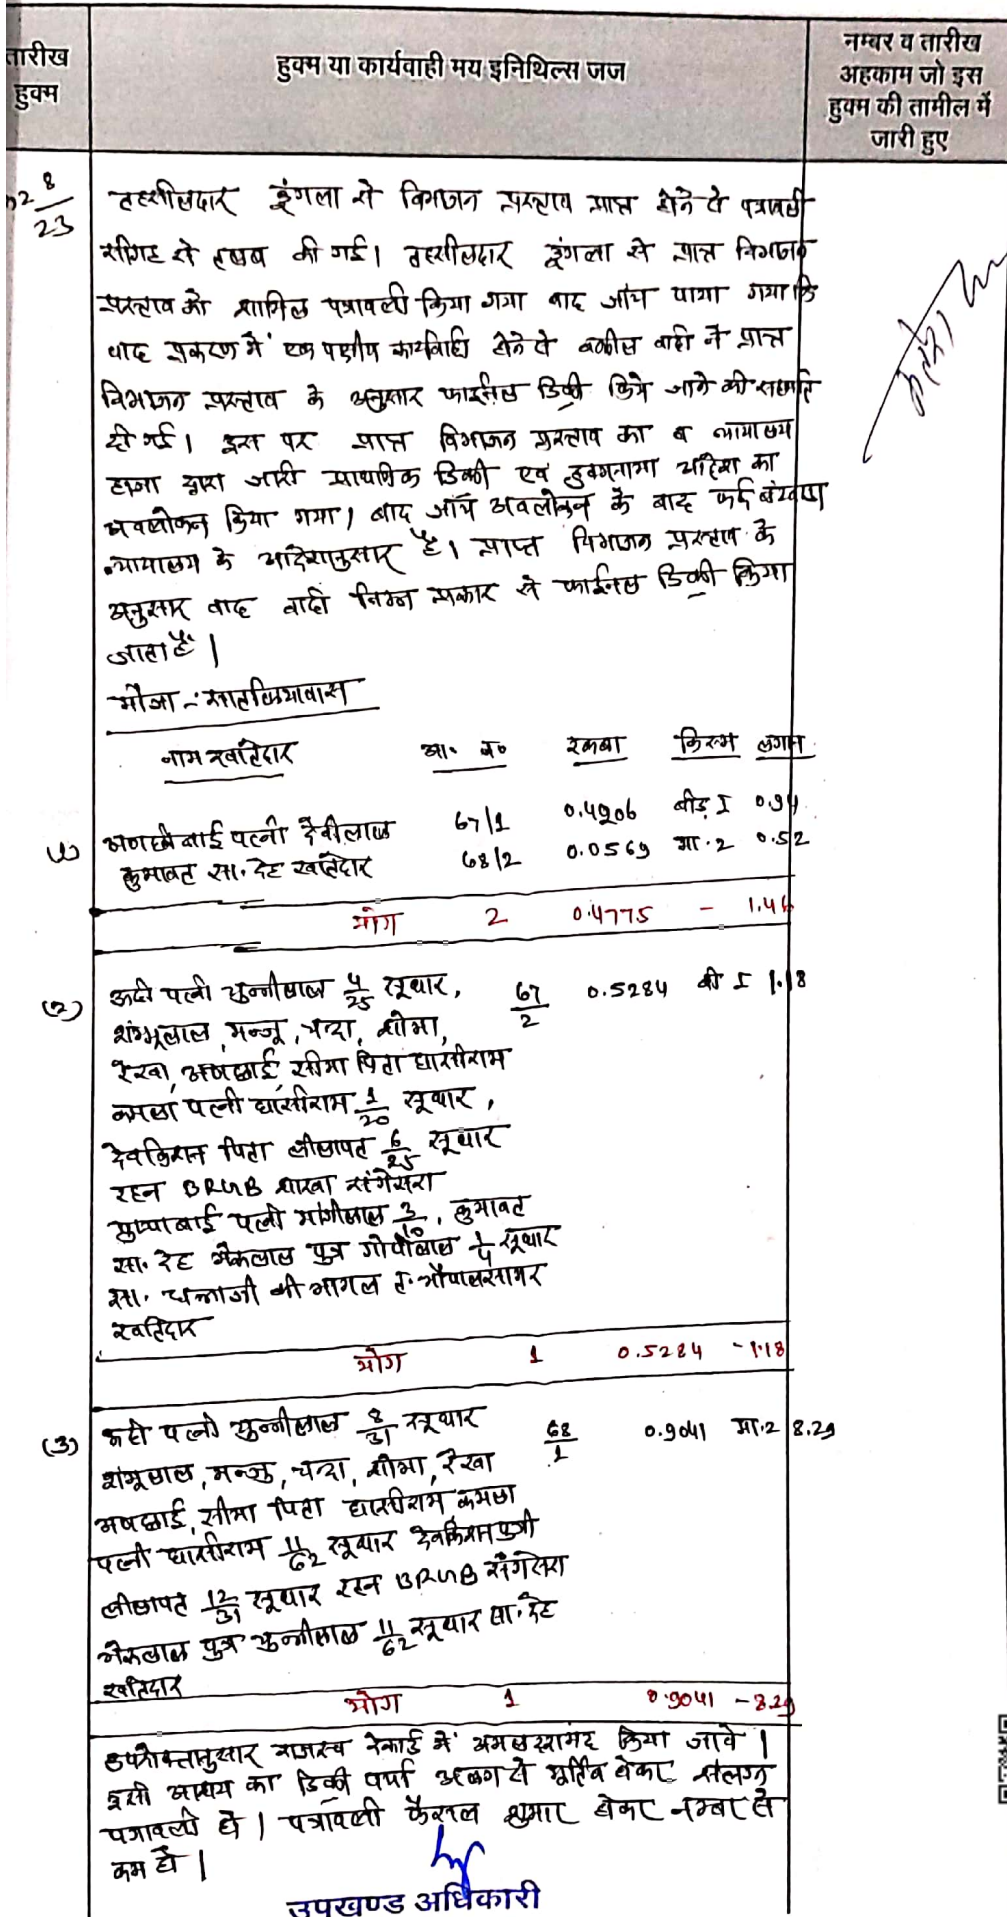 तारीख
हुक्म
हुक्म या कार्यवाही मय इनिथिल्स जज
नम्बर व तारीख
अहकाम जो इस
हुक्म की तामील में
जारी हुए
8
23
तहसीलदार डूंगला से विभाजन प्रस्ताव प्राप्त होने से पत्रावली
सीगह से तलब की गई। तहसीलदार डूंगला से प्राप्त विभाजन
प्रस्ताव को शामिल पत्रावली किया गया बाद जांच पाया गया कि
वाद प्रकरण में एक पक्षीय कार्यवाही होने से वकील वादी ने प्राप्त
विभाजन प्रस्ताव के अनुसार फाईनल डिक्री किये जाने की सहमति
दी गई। इस पर प्राप्त विभाजन प्रस्ताव का व न्यायालय
हाजा द्वारा जारी प्राथमिक डिक्री एवं हुक्मनामा आदेश का
अवलोकन किया गया। बाद जाँच अवलोकन के बाद फर्द बंटवारा
न्यायालय के आदेशानुसार है। प्राप्त विभाजन प्रस्ताव के
अनुसार वाद वादी निम्न प्रकार से फाईनल डिक्री किया
जाता है।
मौजा :-
नाम खातेदार आ. न० रकबा किस्म लगान
(1) बाई पत्नी देवीलाल 67/1 0.4206 बीड़ I 0.94
कुमावत सा. देह खातेदार 68/2 0.0569 मा.2 0.52
योग 2 0.4775 - 1.46
(2) पत्नी चुन्नीलाल 4/25 सुथार, 67/2 0.5284 बी I 1.18
शंभूलाल, मन्जू, चन्दा, शोभा,
रेखा, सीमा पिता घासीराम
कमला पत्नी घासीराम 1/20 सुथार,
देवकिशन पिता 6/25 सुथार
रहन BRGB शाखा संगेसरा
पुष्पाबाई पत्नी मांगीलाल 3/10, कुमावत
सा. देह भैरूलाल पुत्र गोपीलाल 1/4 सुथार
सा. की भागल त. भोपालसागर
खातेदार
योग 1 0.5284 - 1.18
(3) पत्नी चुन्नीलाल 8/31 सुथार 68/1 0.9041 मा.2 8.29
शंभूलाल, मन्जू, चन्दा, शोभा, रेखा
सीमा पिता घासीराम, कमला
पत्नी घासीराम 11/62 सुथार देवकिशन
12/31 सुथार रहन BRGB संगेसरा
भैरूलाल पुत्र चुन्नीलाल 11/62 सुथार सा. देह
खातेदार
योग 1 0.9041 - 8.29
उपरोक्तानुसार राजस्व रेकार्ड में अमलदरामद किया जावे।
इसी आशय का डिक्री पर्चा अलग से मुर्तिब होकर संलग्न
पत्रावली हो। पत्रावली फैसल शुमार होकर नम्बर से
कम हो।
उपखण्ड अधिकारी